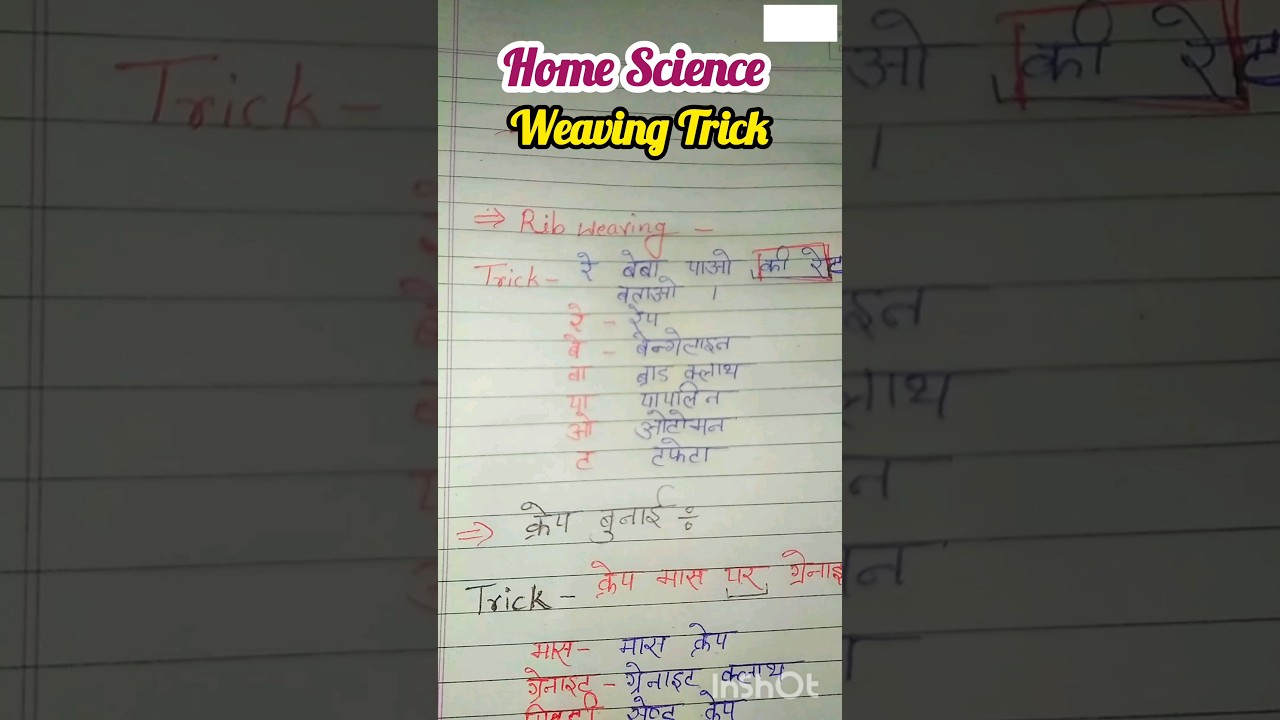 Home Science
Weaving Trick
⇒ Rib weaving -
Trick - रे बेबा पाओ की रेट
बताओ ।
रे - रेप
बे - बेन्गेलाइन
बा ब्राड क्लाथ
पा पापलिन
ओ ओटोमन
ट टफेटा
⇒ क्रेप बुनाई ÷
Trick - क्रेप मास पर ग्रेनाइ
मास - मास क्रेप
ग्रेनाइट - ग्रेनाइट क्लाथ
सेण्ट क्रेप
InShOt